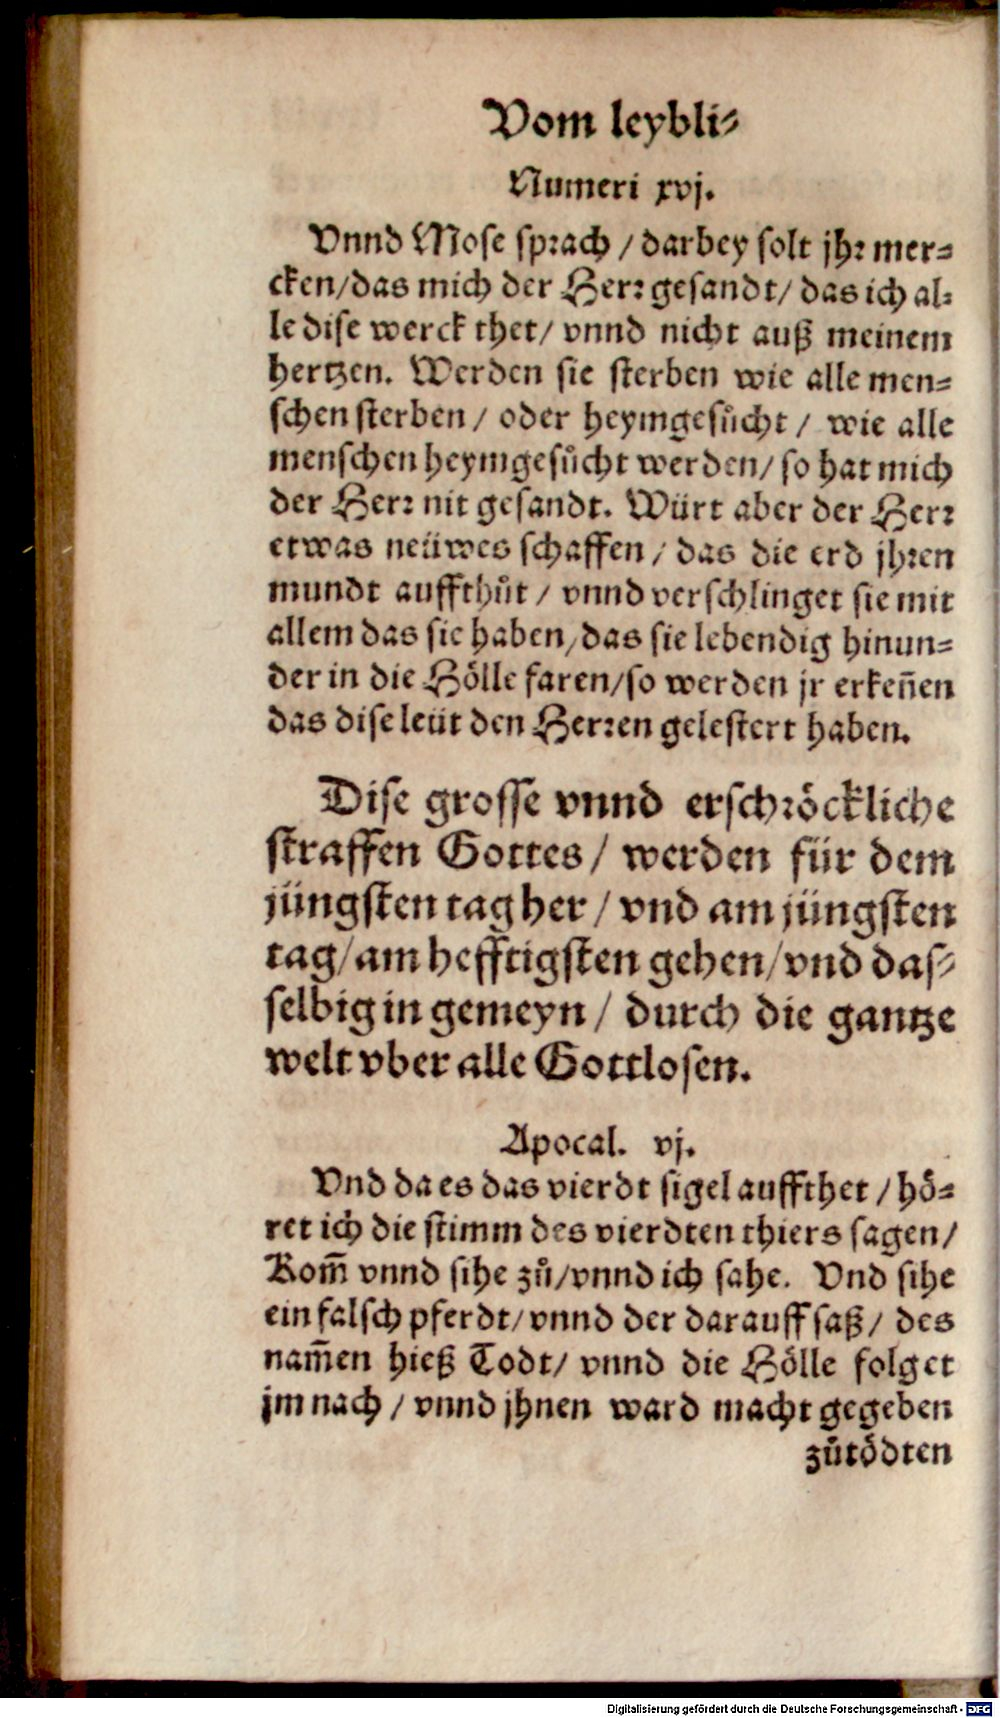 Vom leybli⸗
Numeri xvj.
Vnnd Mose sprach / darbey solt jhr mer⸗
cken/das mich der Herr gesandt/ das ich al⸗
le dise werck thet/ vnnd nicht auß meinem
hertzen. Werden sie sterben wie alle men⸗
schen sterben / oder heymgesuͦcht / wie alle
menschen heymgesuͦcht werden/ so hat mich
der Herr nit gesandt. Würt aber der Herr
etwas neüwes schaffen / das die erd jhren
mundt auffthuͦt / vnnd verschlinget sie mit
allem das sie haben/das sie lebendig hinun⸗
der in die Hölle faren/so werden jr erkeñen
das dise leüt den Herren gelestert haben.
Dise grosse vnnd erschröckliche
straffen Gottes / werden für dem
jüngsten tag her / vnd am jüngsten
tag/am hefftigsten gehen/vnd das⸗
selbig in gemeyn / durch die gantze
welt vber alle Gottlosen.
Apocal. vj.
Vnd da es das vierdt sigel auffthet / hö⸗
ret ich die stimm des vierdten thiers sagen/
Kom̃ vnnd sihe zuͦ/vnnd ich sahe. Vnd sihe
ein falsch pferdt/vnnd der darauff saß/ des
nam̃en hieß Todt/ vnnd die Hölle folget
jm nach / vnnd jhnen ward macht gegeben
zuͦtödten
Digitalisierung gefördert durch die Deutsche Forschungsgemeinschaft - DFG